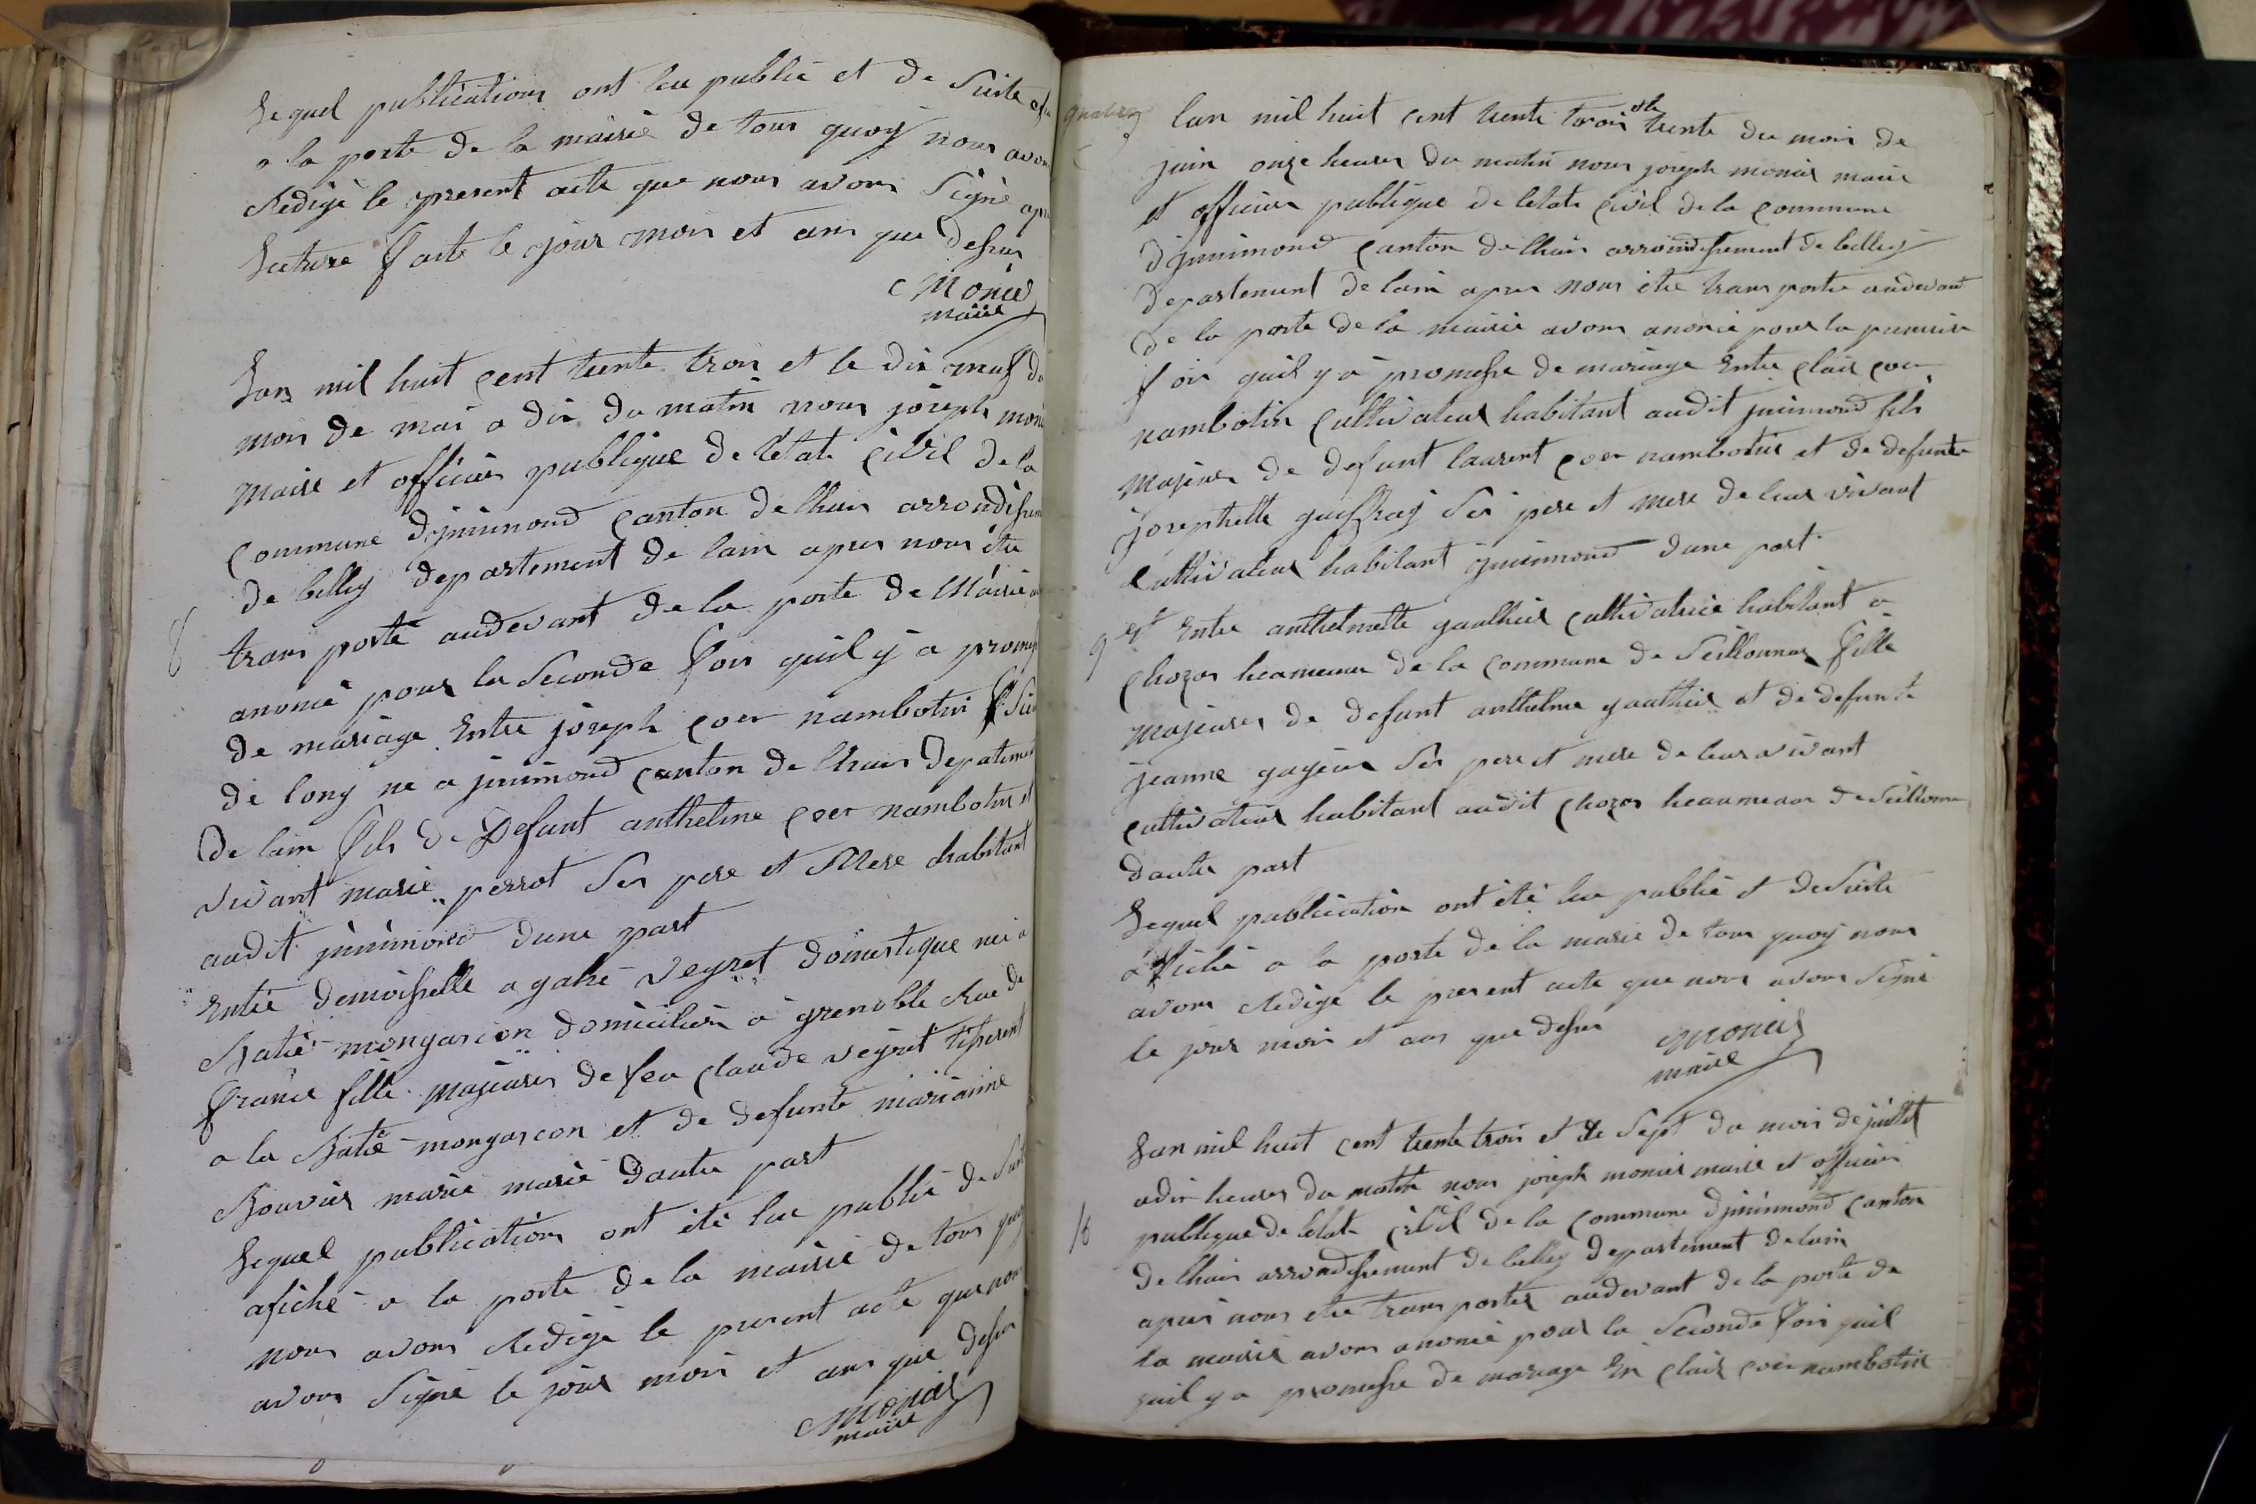 Lequel publications ont lu publié et de suite
a la porte de la mairie de tour quoy nous avons
Redigé le present acte que nous avons Signé
Lecture faite le jour mois et ans que desus
Monié
maire
Lan mil huit cent trente trois et le dix neuf du
mois de mai a dix du matin nous joseph
maire et officier publique de létate civil de la
commune djnnimond canton de lhuis
de belley departement de lain apres nous étre
8
trans porté audevant de la porte de Mairie
anoncé pour la Seconde fois quil y a
de mariage Entre joseph coer nambotin
de long ne a jnnimond canton de lhuis Depatement
De lain fils de Defunt anthelme coer nambotin et
vivant marie perrot Ses pere et Mere habitant
audit jnnimond dune part
Entre demoisselle agahé veyret domestique neé a
Batié mongascon domicilieé a grenoble Rue de
france fille majeures de feu claude veyret tisserent
a la Batié mongascon et de defunte marianne
Bouvier marié marié dautre part
Lequel publication ont été lue publié de
afiché a la porte de la mairie de tour
nous avons Redigé le present acte que nous
avons Signé le jour mois et ans que desus
Monié
maire
lan mil huit cent trente trois et le trente du mois de
juin onze heures du matin nous joseph monié maire
et officier publique de létate civil de la commune
djnnimond canton de lhuis arrondissement de belley
departement de lain apres nous étre trans porté audevant
de la porte de la mairie avons anoncé pour la premiere
fois quil y a promesse de mariage Entre clair coer
nambotin cultivateur habitant audit jnnimond fils
majeur de defunt laurent coer nambotin et de defunte
josephette Ses pere et mere de leur vivant
cultivateur habitant jnnimond dune part
9 et Entre anthelmette gauthier cultivatrice habitant a
chozas heameaux de la commune de Seillonnas fille
majeures de defunt anthelme gauthier et de defunte
jeanne Ses pere et mere de leur vivant
cultivateur habitant audit chozas heaumeaux de
dautre part
Lequel publiication ont été lue publié et de Suite
afiché a la porte de la marie de tour quoy nous
avons Redigé le present acte que nous avons Signé
le jour mois et ans que desus
Monié
maire
Lan mil huit cent trente trois et le Sept du mois de juillet
adix heures du matin nous joseph monié maire et officier
10
publique de létate civil de la commune djnnimond canton
de lhuis arrondissement de belley departement de lain
apres nous étre trans porter audevant de la porte de
la mairie avons anoncé pour la Seconde fois quil
quil y a promesse de mariage En clair coer nambotin